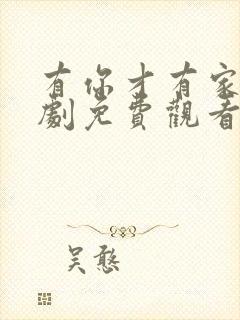 有你才有家
劇免費觀看
吴憨